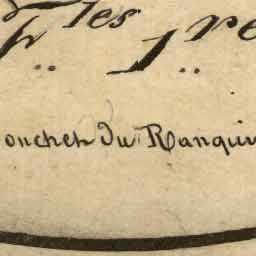 F..les 1..re
onchet du Ranquin